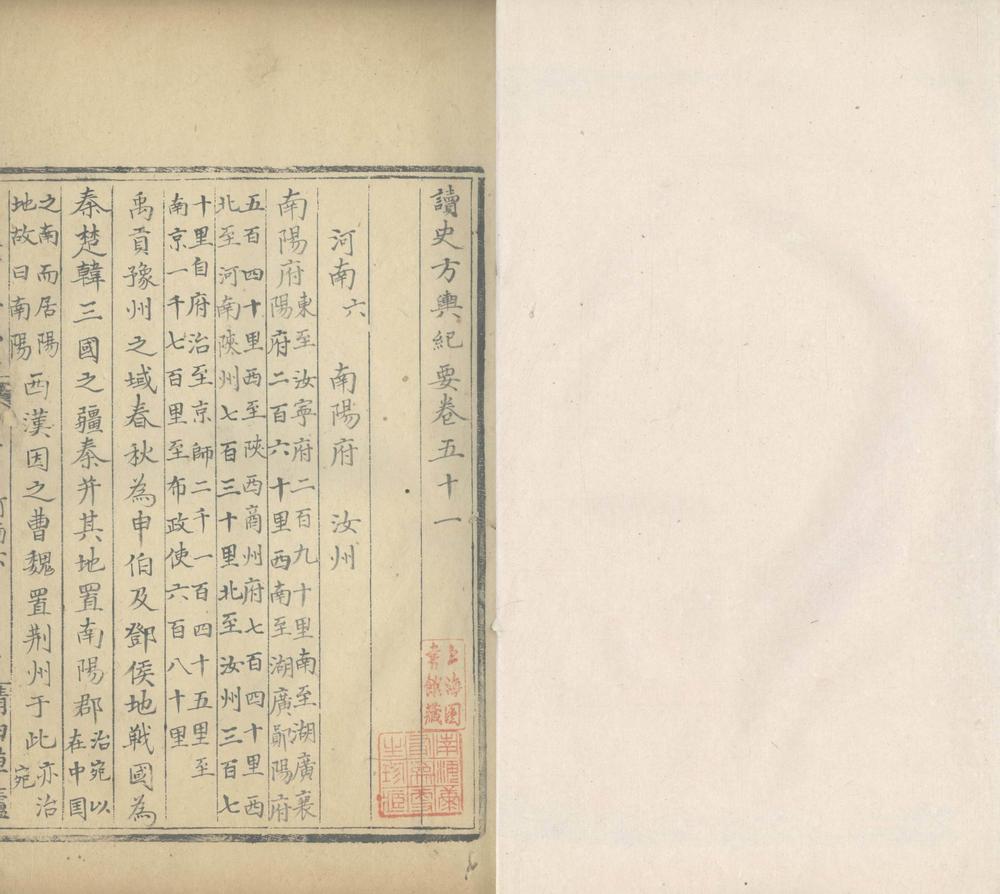 讀史方輿紀要卷五十一
河南六　南陽府　汝州
南陽府東至汝寧府二百九十里南至湖廣襄
陽府二百六十里西南至湖廣鄖陽府
五百四十里西至陝西商州府七百四十里西
北至河南陝州七百三十里北至汝州三百七
十里自府治至京師二千一百四十五里至
南京一千七百里至布政使六百八十里
禹貢豫州之域春秋為申伯及鄧侯地戰國為
秦楚韓三國之疆秦并其地置南陽郡治宛以
在中国
之南而居陽
地故曰南陽西漢因之曹魏置荆州于此亦治
宛
上海圖
書館藏